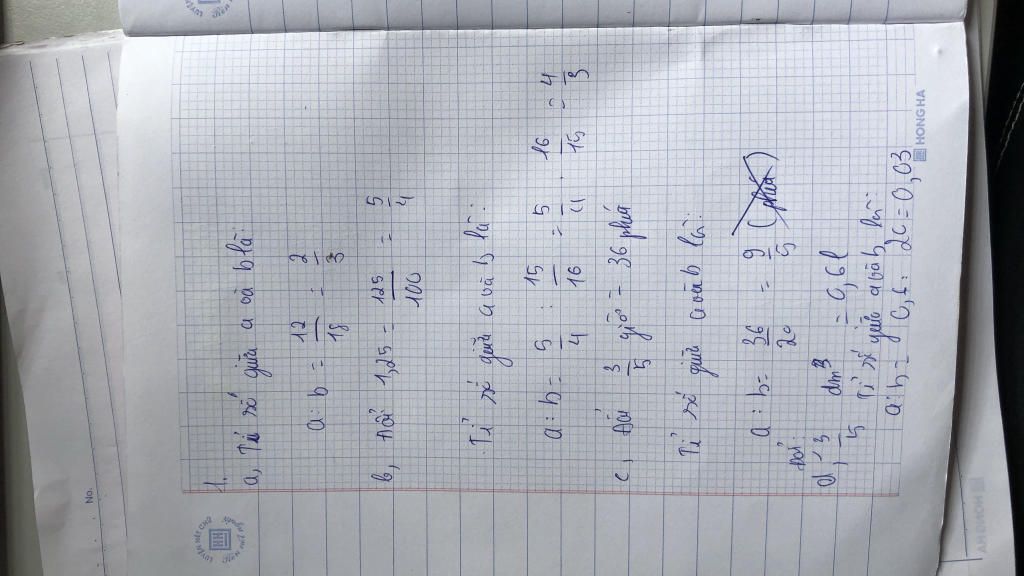 1.
a, Tỉ số giữa a và b là:
a : b = 12/18 = 2/3
b, Đổi 1,25 = 125/100 = 5/4
Tỉ số giữa a và b là:
a : b = 5/4 : 15/16 = 5/4 . 16/15 = 4/3
c, Đổi 3/5 giờ = 36 phút
Tỉ số giữa a và b là:
a : b = 36/20 = 9/5 (phút)
d, Đổi: 3/5 dm³ = 0,6 l
Tỉ số giữa a và b là:
a : b = 0,6 : 20 = 0,03
HONG HA
No.
LUYỆN NÉT CHỮ